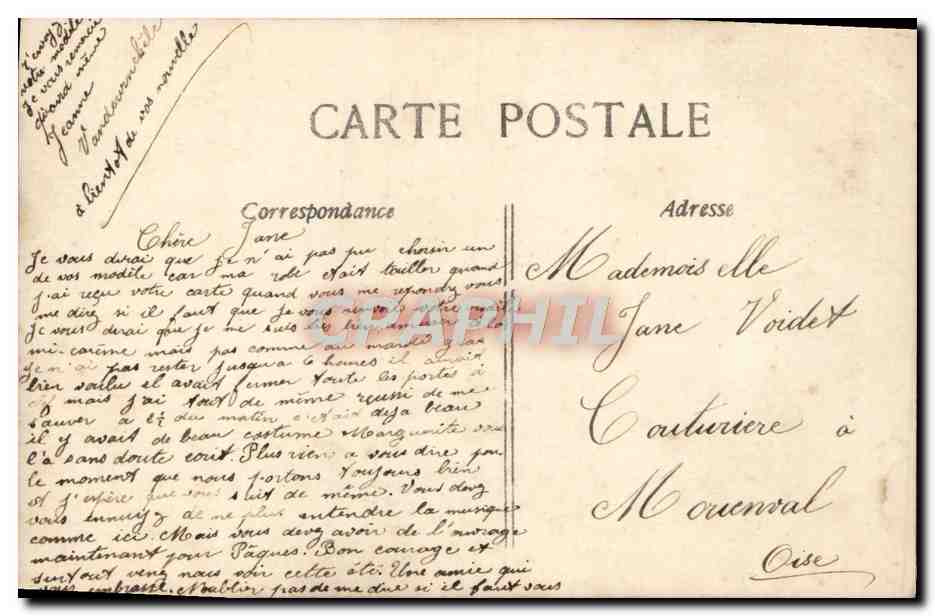 CARTE POSTALE
Correspondance
Adresse
Chère Jane
Je vous dirai que je n'ai pas pu choisir un
de vos modèle car ma robe était tailler quand
j'ai reçu votre carte quand vous me repondez vous
me direz si il faut que je vous renvoi votre modèle
Je vous dirai que je me suis bien amuser à la
mi-carème mais pas comme au mardi gras
je n'ai pas rester jusqu'a 6 heures il aurait
bien voulu il avait fermer toute les portes à
clef mais j'ai tout de même reussi de me
sauver a 2½ du matin c'était deja beau
il y avait de beau costume Marguerite vous
l'a sans doute ecrit. Plus rien a vous dire pour
le moment que nous portons toujours bien
et j'espère que vous suit de même. Vous devez
vous ennuiez de ne plus entendre la musique
comme ici. Mais vous devez avoir de l'ouvrage
maintenant pour Pâques. Bon courage et
surtout venez nous voir cette été. Une amie qui
vous embrasse. N'oublier pas de me dire si il faut vous
j'envoyé
votre modèle
Je vous remercie
quand même
Jeanne
à bientot de vos nouvelle
Mademoiselle
Jane Voidet
Couturiere à
Morienval
Oise
DELCAMPHIL